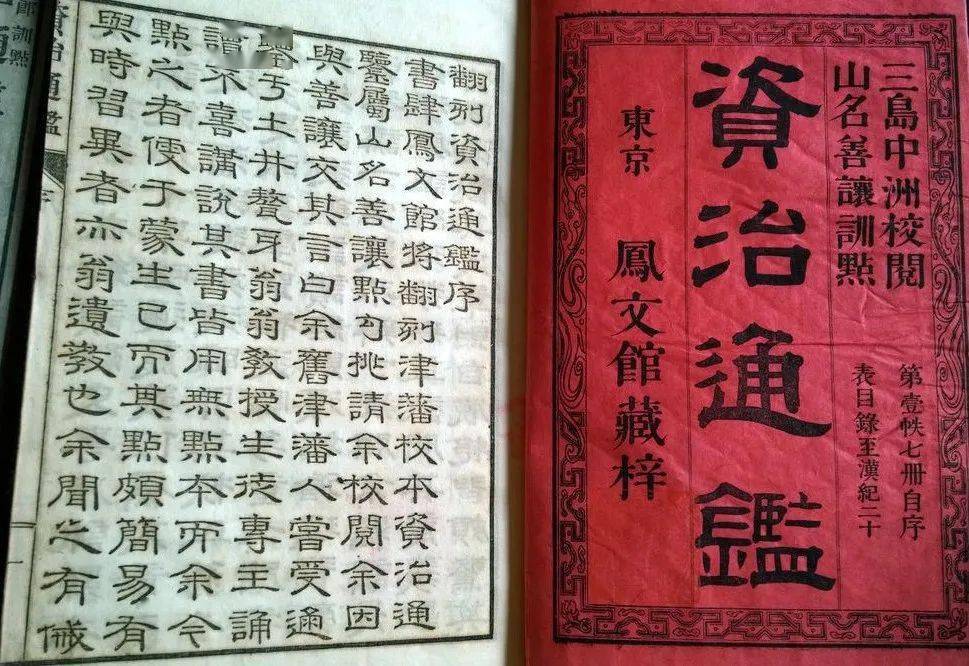 三島中洲校閱
山名善讓訓點
第壹帙七冊自序
表目錄至漢紀二十
資治通鑑
東京 鳳文館藏梓
翻刻資治通鑑序
書肆鳳文館將翻刻津藩校本資治通
鑒屬山名善讓點句挑請余校閱余因
與善讓文其言曰余舊津藩人嘗受通
于土井聱牙翁翁敎授生徒專主誦
讀不喜講說其書皆用無點本而余今
點之者便于蒙生已而其點頗簡易有
與時習異者亦翁遺敎也余聞之有
資治通鑑 序
訓點